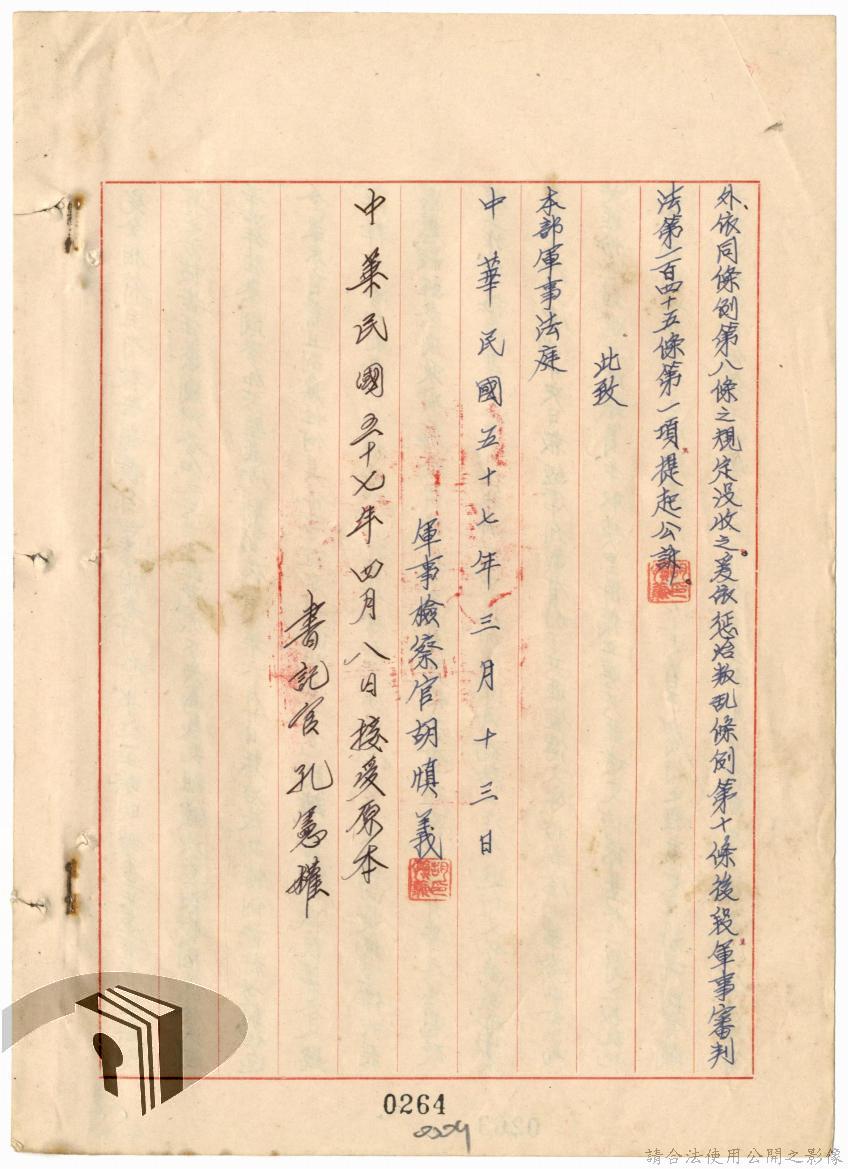 外依同條例第八條之規定沒收之爰依懲治叛乱條例第十條後段軍事審判
法第一百四十五條第一項提起公訴
此致
本部軍事法庭
中華民國五十七年三月十三日
軍事檢察官胡慎義
中華民國五十七年四月八日接受原本
書記官孔憲權
0264
請合法使用公開之影像